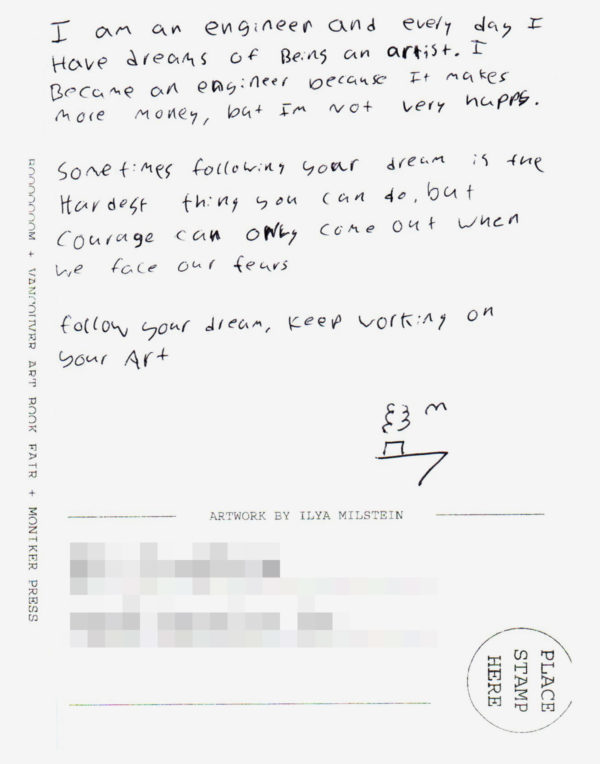 I am an engineer and every day I
Have dreams of Being an artist. I
Became an engineer because It makes
more money, but Im not very happy.
Sometimes following your dream is the
Hardest thing you can do, but
Courage can only come out when
we face our fears
follow your dream, Keep working on
your Art
ARTWORK BY ILYA MILSTEIN
BOOOOOOOM + VANCOUVER ART BOOK FAIR + MONIKER PRESS
PLACE
STAMP
HERE